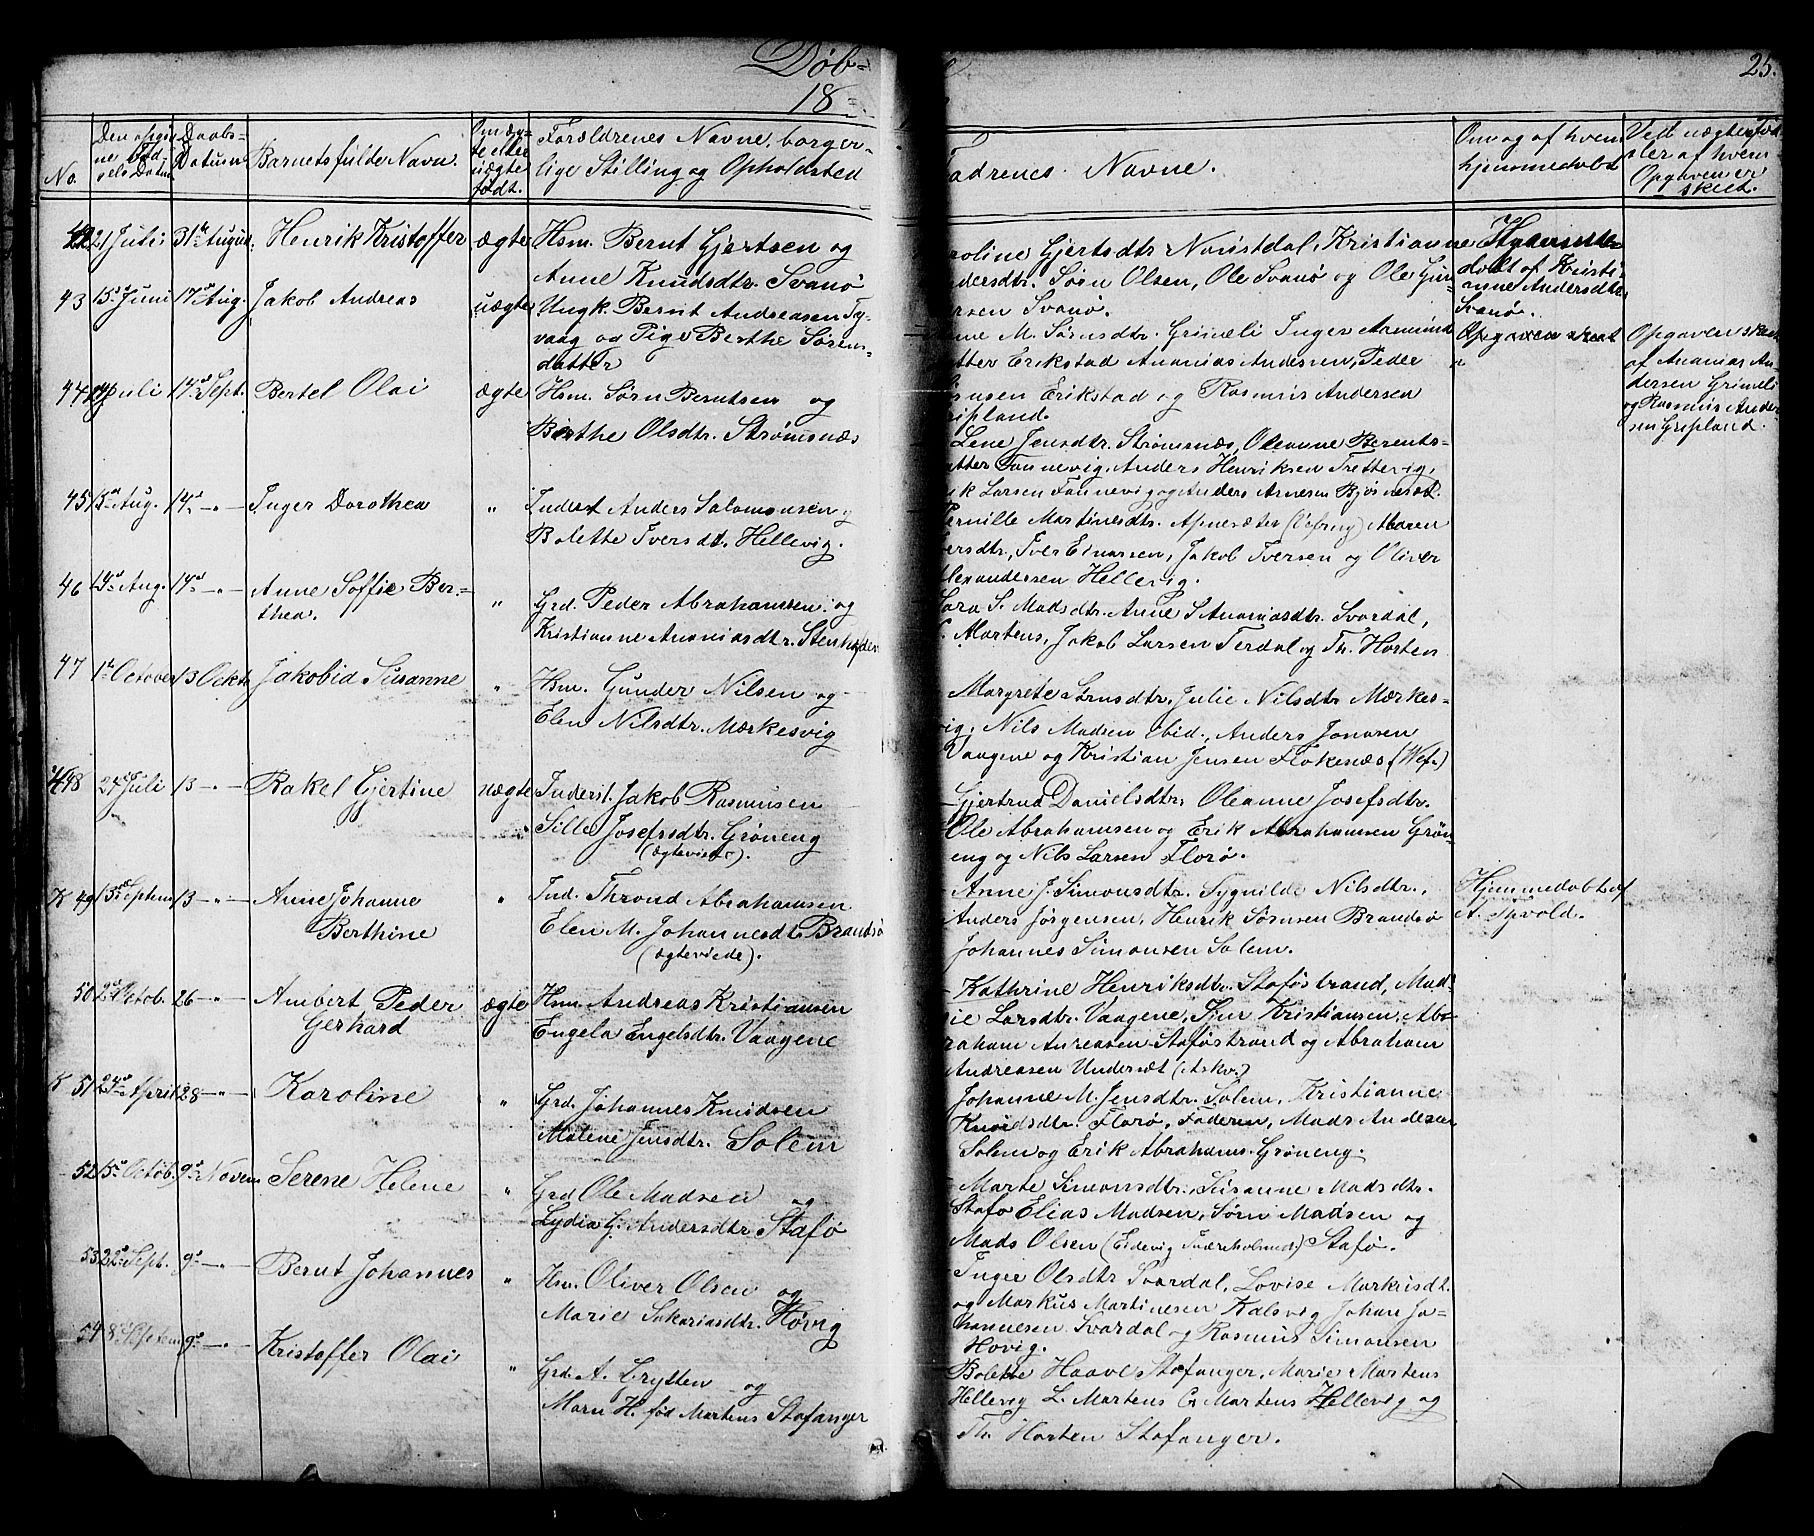 Døb-
18
25.
No.
Datum
Barnets fulde Navn.
Om æg-
te eller
uægte
født.
Forældrenes Navne, borger-
lige Stilling og Opholdsted
Fadrenes Navne.
Om og af hvem
hjemmedøbt
Opgaven er
skeet.
21 Juli 31te August. Henrik Kristoffer ægte Hsm. Bernt Gjertsen og
Anne Knudsdtr. Svanø
roline Gjertsdtr Naustdal, Kristianne
dersdtr. Sørn Olsen, Ole Svanø og Ole Gun-
ersen Svanø.
døbt af Kristi-
anne Andersdtr.
Svanø.
43 15de Juni 17de Aug. Jakob Andreas uægte Ungk. Bernt Andreasen Ty-
vaag og Pige Berthe Søren-
datter
ne M. Sørnsdtr. Grimeli Inger Aamund
atter Erikstad Ananias Andersen, Peder
nusen Erikstad og Rasmus Andersen
ripland.
Opgaven skeet
af Ananias An-
dersen Grimeli
og Rasmus Ander-
sen Gripland.
44 Juli 17de Sept. Bertel Olai ægte Hsm. Sørn Berntsen og
Berthe Olsdtr. Strømsnæs
Lene Jensdtr. Strømsnæs, Oleanne Berents-
atter Fannevig, Anders Henriksen Trettevig,
k Larsen Fannevig og Anders Arnesen Bjørneset.
45 15de Aug. 14de -"- Inger Dorothea " Inderst Anders Salomonsen og
Bolette Iversdt. Hellevig.
Pernille Martinesdtr. Apnesæter (Vefring) Maren
versdtr., Iver Einarsen, Jakob Iversen og Oliver
lexandersen Hellevig.
46 14de Aug. 14de -"- Anne Soffie Ber-
thea. " Grd. Peder Abrahamsen og
Kristianne Ananiasdtr. Stenhofden
Sara S. Madsdtr. Anne S Ananiasdtr. Svardal,
Martens, Jakob Larsen Terdal og Th. Horten
47 1te October 13 Octb. Jakobid Susanne " Hsm. Gunder Nilsen og
Elen Nilsdtr. Mærkesvig
Margrete Sørnsdtr. Julie Nilsdtr Mærkes-
vig, Nils Madsen ibid., Anders Jonasen
Vaagene og Kristian Jensen Flokenæs (Wef.)
48 27de Juli 13 -"- Rakel Gjertine uægte Inderst. Jakob Rasmusen
Sille Josefsdtr. Grøneng
(ægteviede).
Gjertrud Danielsdtr. Oleanne Josefsdtr.
Ole Abrahamsen og Erik Abrahamsen Grøn-
eng og Nils Larsen Florø.
49 13de Septem 13 -"- Anne Johanne
Berthine " Ind. Thrond Abrahamsen
Elen M. Johannesdt. Brandsø
(ægteviede).
Anne J. Simonsdtr. Sygnilde Nilsdtr.,
Anders Jørgensen, Henrik Sørnsen Brandsø
Johannes Simonsen Solem.
Hjemmedøbt af
50 2de Octob. 26 -"- Ambert Peder
Gerhard ægte Hsm. Andreas Kristiansen
Engela Engelsdtr. Vaagene
Kathrine Henriksdtr. Staføstrand, Mad-
sie Larsdtr. Vaagene, Sjur Kristiansen, Ab-
raham Anreasen Staføstrand og Abraham
Andreasen Undersæt (Askv.)
51 24de April 28 -"- Karoline " Grd. Johannes Knudsen
Malene Jensdtr. Solem
Johanne M. Jensdtr. Solem, Kristianne
Knudsdtr. Florø, Faderen, Mads Andersen
Solem og Erik Abrahams. Grøneng.
52 15de Octob. 9de Novem. Serene Helene " Grd Ole Madsen og
Lydia G. Andersdtr Stafø
Marte Simonsdtr., Susanne Madsdtr.
Stafø Elias Madsen, Sørn Madsen og
Mads Olsen Stafø.
53 22de Sept. 9de -"- Bernt Johannes " Hsm. Oliver Olsen og
Marie Sakariasdtr. Høvig
Inger Olsdtr Svardal, Lovise Markusdt.
og Markus Martinesen Kalsvig Johan Jo-
hannesen Svardal og Rasmus Simonsen
Hovig.
54 8de Septem 9de -"- Kristoffer Olai " Grd. A. Lrytten og
Maru H. fød Martens Stafanger
Bolette Haave Stafanger, Marie Martens
Hellevig L. Martens C. Martens Hellevig og
Th. Horten Stafanger.